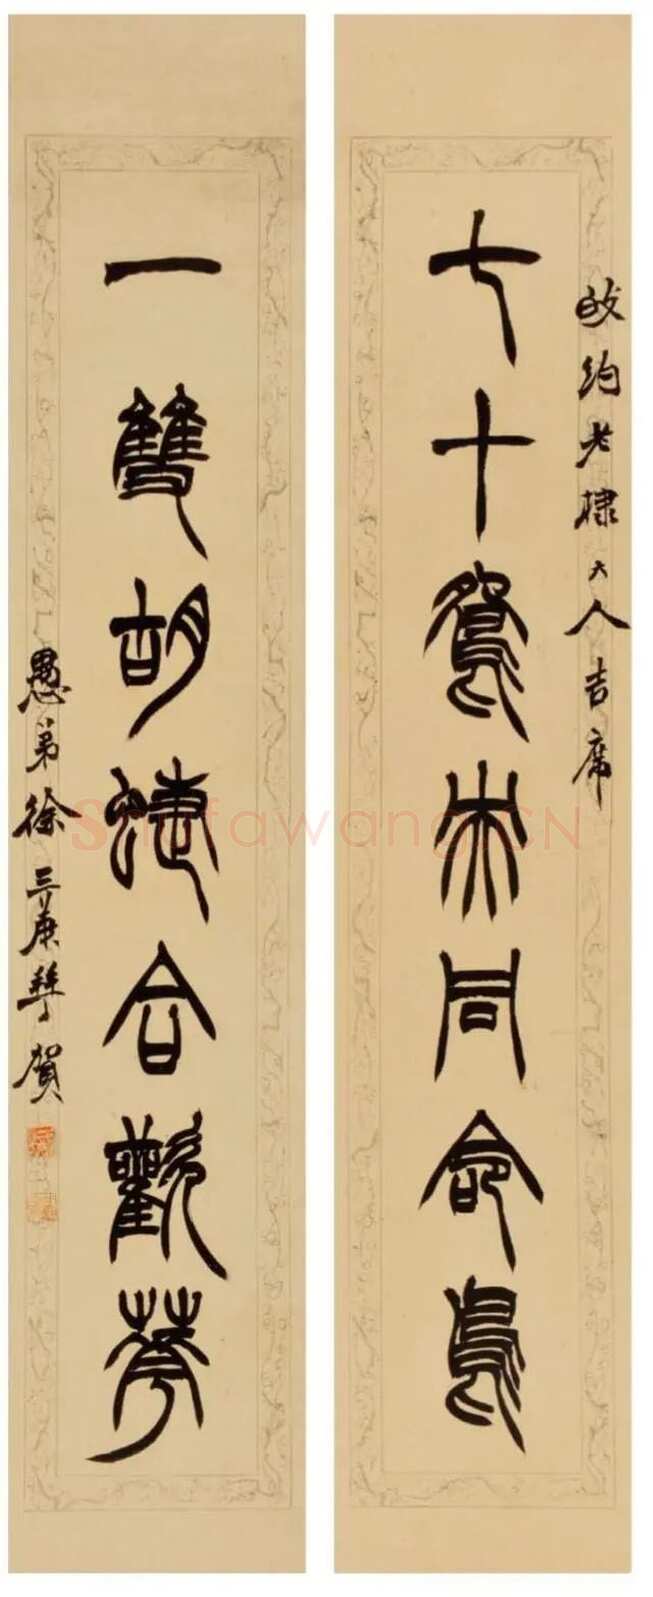 約老棣大人吉席
七十鴛央同命鳥
一雙胡蜨合歡華
愚弟徐三庚拜賀
Shufawang.CN